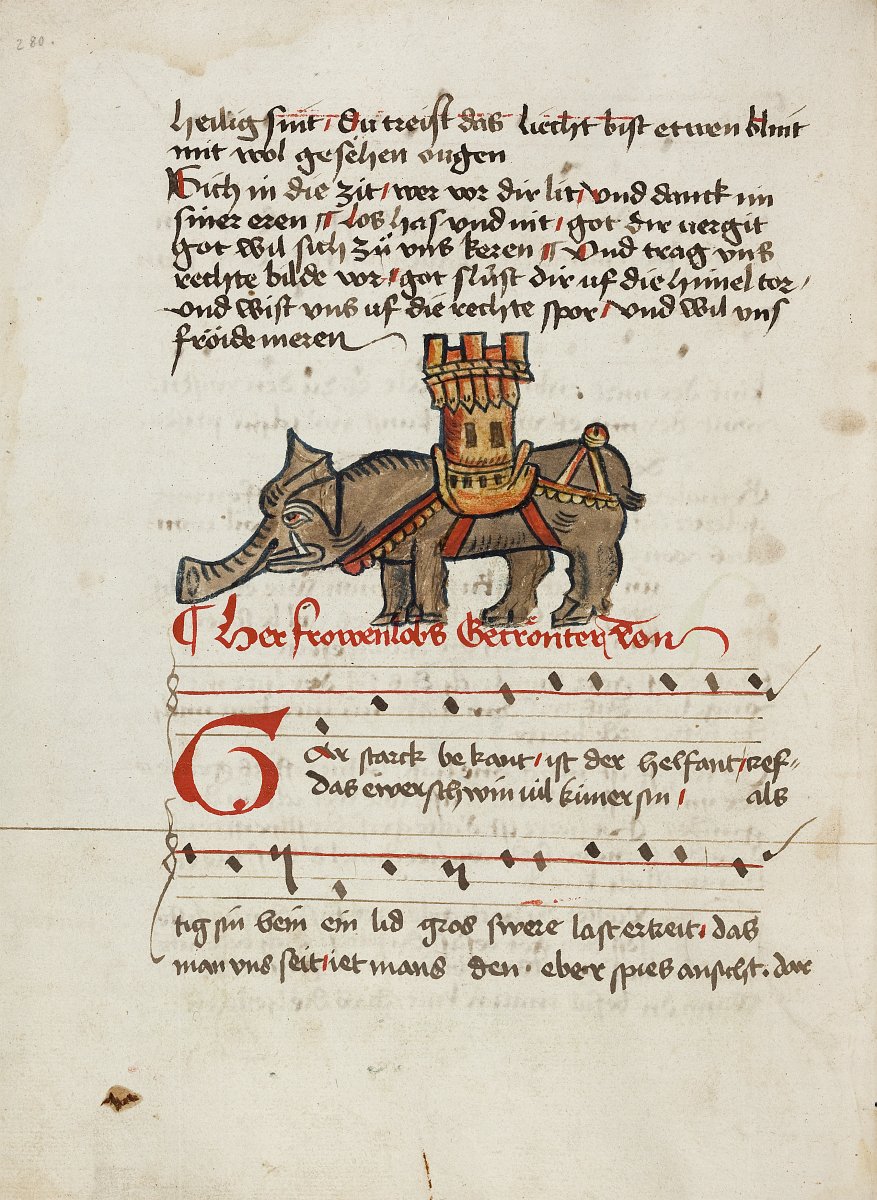 280.
heilig sint / Du treist das liecht bist etwen blint
mit wol gesehen ougen
Sich in die zit / wer vor dir lit / vnd danck im
siner eren ¶ los has vnd nit / got dir vergit
got wil sich zů vns keren ¶ Vnd trag vns
rechte bilde vor / got slüst dir uf die himel tor /
vnd wist vns uf die rechte spor / vnd wil vns
fröide meren
¶ Her frowenlobs Getrönter ton
GAr starck bekant / ist der helfant / ref-
das ewerschwin vil küner sin / als
tig sin bein ein lid gros swere last ertreit / das
man vns seit / iet mans den . eber spies ansicht . dar